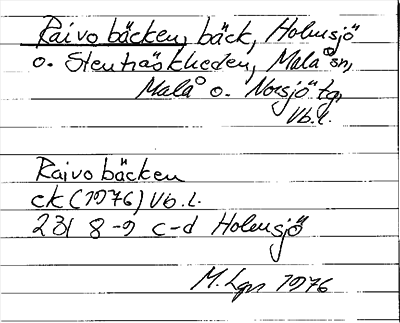 Raivobäcken, bäck, Holmsjö
o. Stenträskheden, Malå sn,
Malå o. Norsjö tg,
Vb.l.
Raivobäcken
ek (1976) Vb.l.
23I 8-9 c-d Holmsjö
M. Lgn 1976